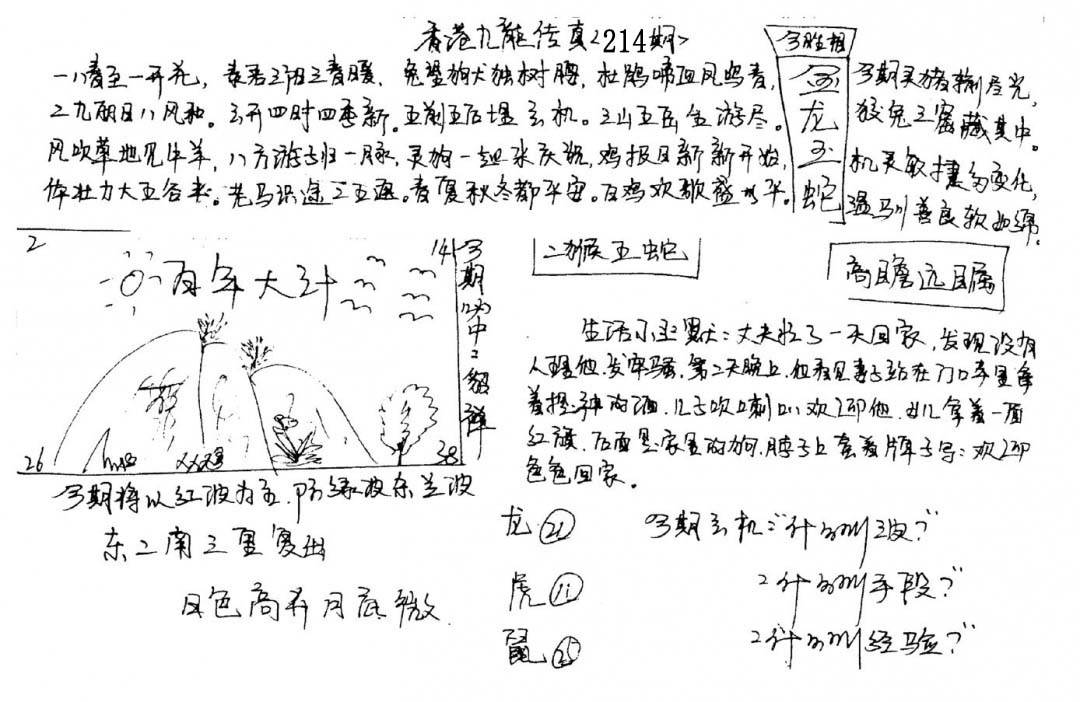 香港九龍传真<214期>
一八春至一开花， 三阳三春暖、兔望狗犬独树腰，杜鹃啼血凤鸣春，
二九明日八风和。 开四时四季新。五前五后埋玄机。三山五岳全游尽。
风吹草地见牛羊，八方游子归一脉，灵狗一起来庆祝，鸡报日新新开始，
体壮力大五谷丰。老马识途三五遍。春夏秋冬都平安。百鸡欢歌盛水平。
今期灵猪捌尽光，
狡兔三窟藏其中。
机灵敏捷多变化，
温驯善良软如绵。
今期
金
龙
玉
蛇
2
百年大计
14
26
38
今期必中2组群
二猴五蛇
高瞻远瞩
生活小幽默：丈夫忙了一天回家，发现没有
人理他.发牢骚，第二天晚上，他看见妻子站在门口手里拿
着提神的酒，儿子吹喇叭欢迎他，女儿拿着一面
红旗，后面是家里的狗，脖子上套着牌子写：欢迎
爸爸回家。
今期将以红波为主.防绿波杀兰波
东二南三里复出
日色高升月底微
龙㉑
虎⑪
鼠㉕
今期玄机："什么叫 波？"
2什么叫手段？"
2什么叫经验？"